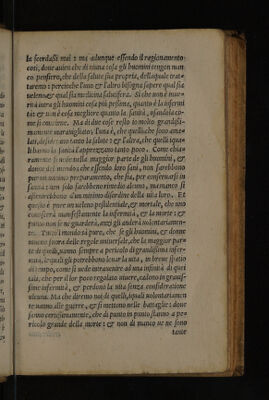 le scordassi mai: ma adunque essendo il ragionamento
così, doue auiene che di niuna cosa gli huomini tengon man
co pensiero, che della salute sua propria, della quale trat-
taremo: percioche l'uno & l'altro bisogna sapere qual sia
ueleno & qual sia medicina salutifera. Si che non è
aura a gli huomini cosa più pessima, quanto è la infermi
tà: & niuna cosa megliore quanto la sanità, usandola co-
me si conuiene. Ma di due cose io resto molto grandissi-
mamente marauigliato; l'una è, che quelli che sono ama-
lati, desiderano tanto la salute: & l'altra, che quelli i qua-
li hanno la sanità l'apprezzano tanto poco. Come chia-
ramente si uede nella maggior parte de gli huomini, &
donne del mondo: che essendo loro sani, non farebbono
pur un minimo preparamento, che sia, per conseruarsi in
sanità: ne solo farebbono rimedio alcuno, ma manco si
asterrebbono d'un minimo disordine della uita loro. Et
questo è pure un ueleno pestilentiale, & mortale, che uno
conoscerà manifestamente la infermità, & la morte: &
pur non se ne guarderà, anzi gli anderà uolontariamen-
te. Tutto'l mondo sà pure, che se gli huomini, & donne
uiuono fuora delle regole uniuersale, che la maggior par-
te di quelli, uanno sempre a pericolo di grandissima infer-
mità, le quali gli potrebbono leuar la uita, in breue spatio
di tempo, come si uede interuenire ad una infinità di que
i tali, che per il lor poco regolato uiuere, cadono in grandis-
sime infermità, & perdono la uita senza consideratione
alcuna. Ma che diremo noi di quelli, i quali uolontariamen-
te uanno alle guerre, & si mettono nelle battaglie: doue
sanno certissimamente, che di punto in punto stanno a pe-
ricolo grande della morte: & non di manco ue ne sono
tante